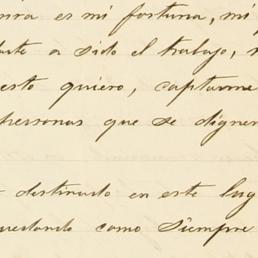 es mi fortuna, mi
a sido el trabajo,
esto quiero, captarme
personas que se dignen
destinado en este lug
quedando como siempre